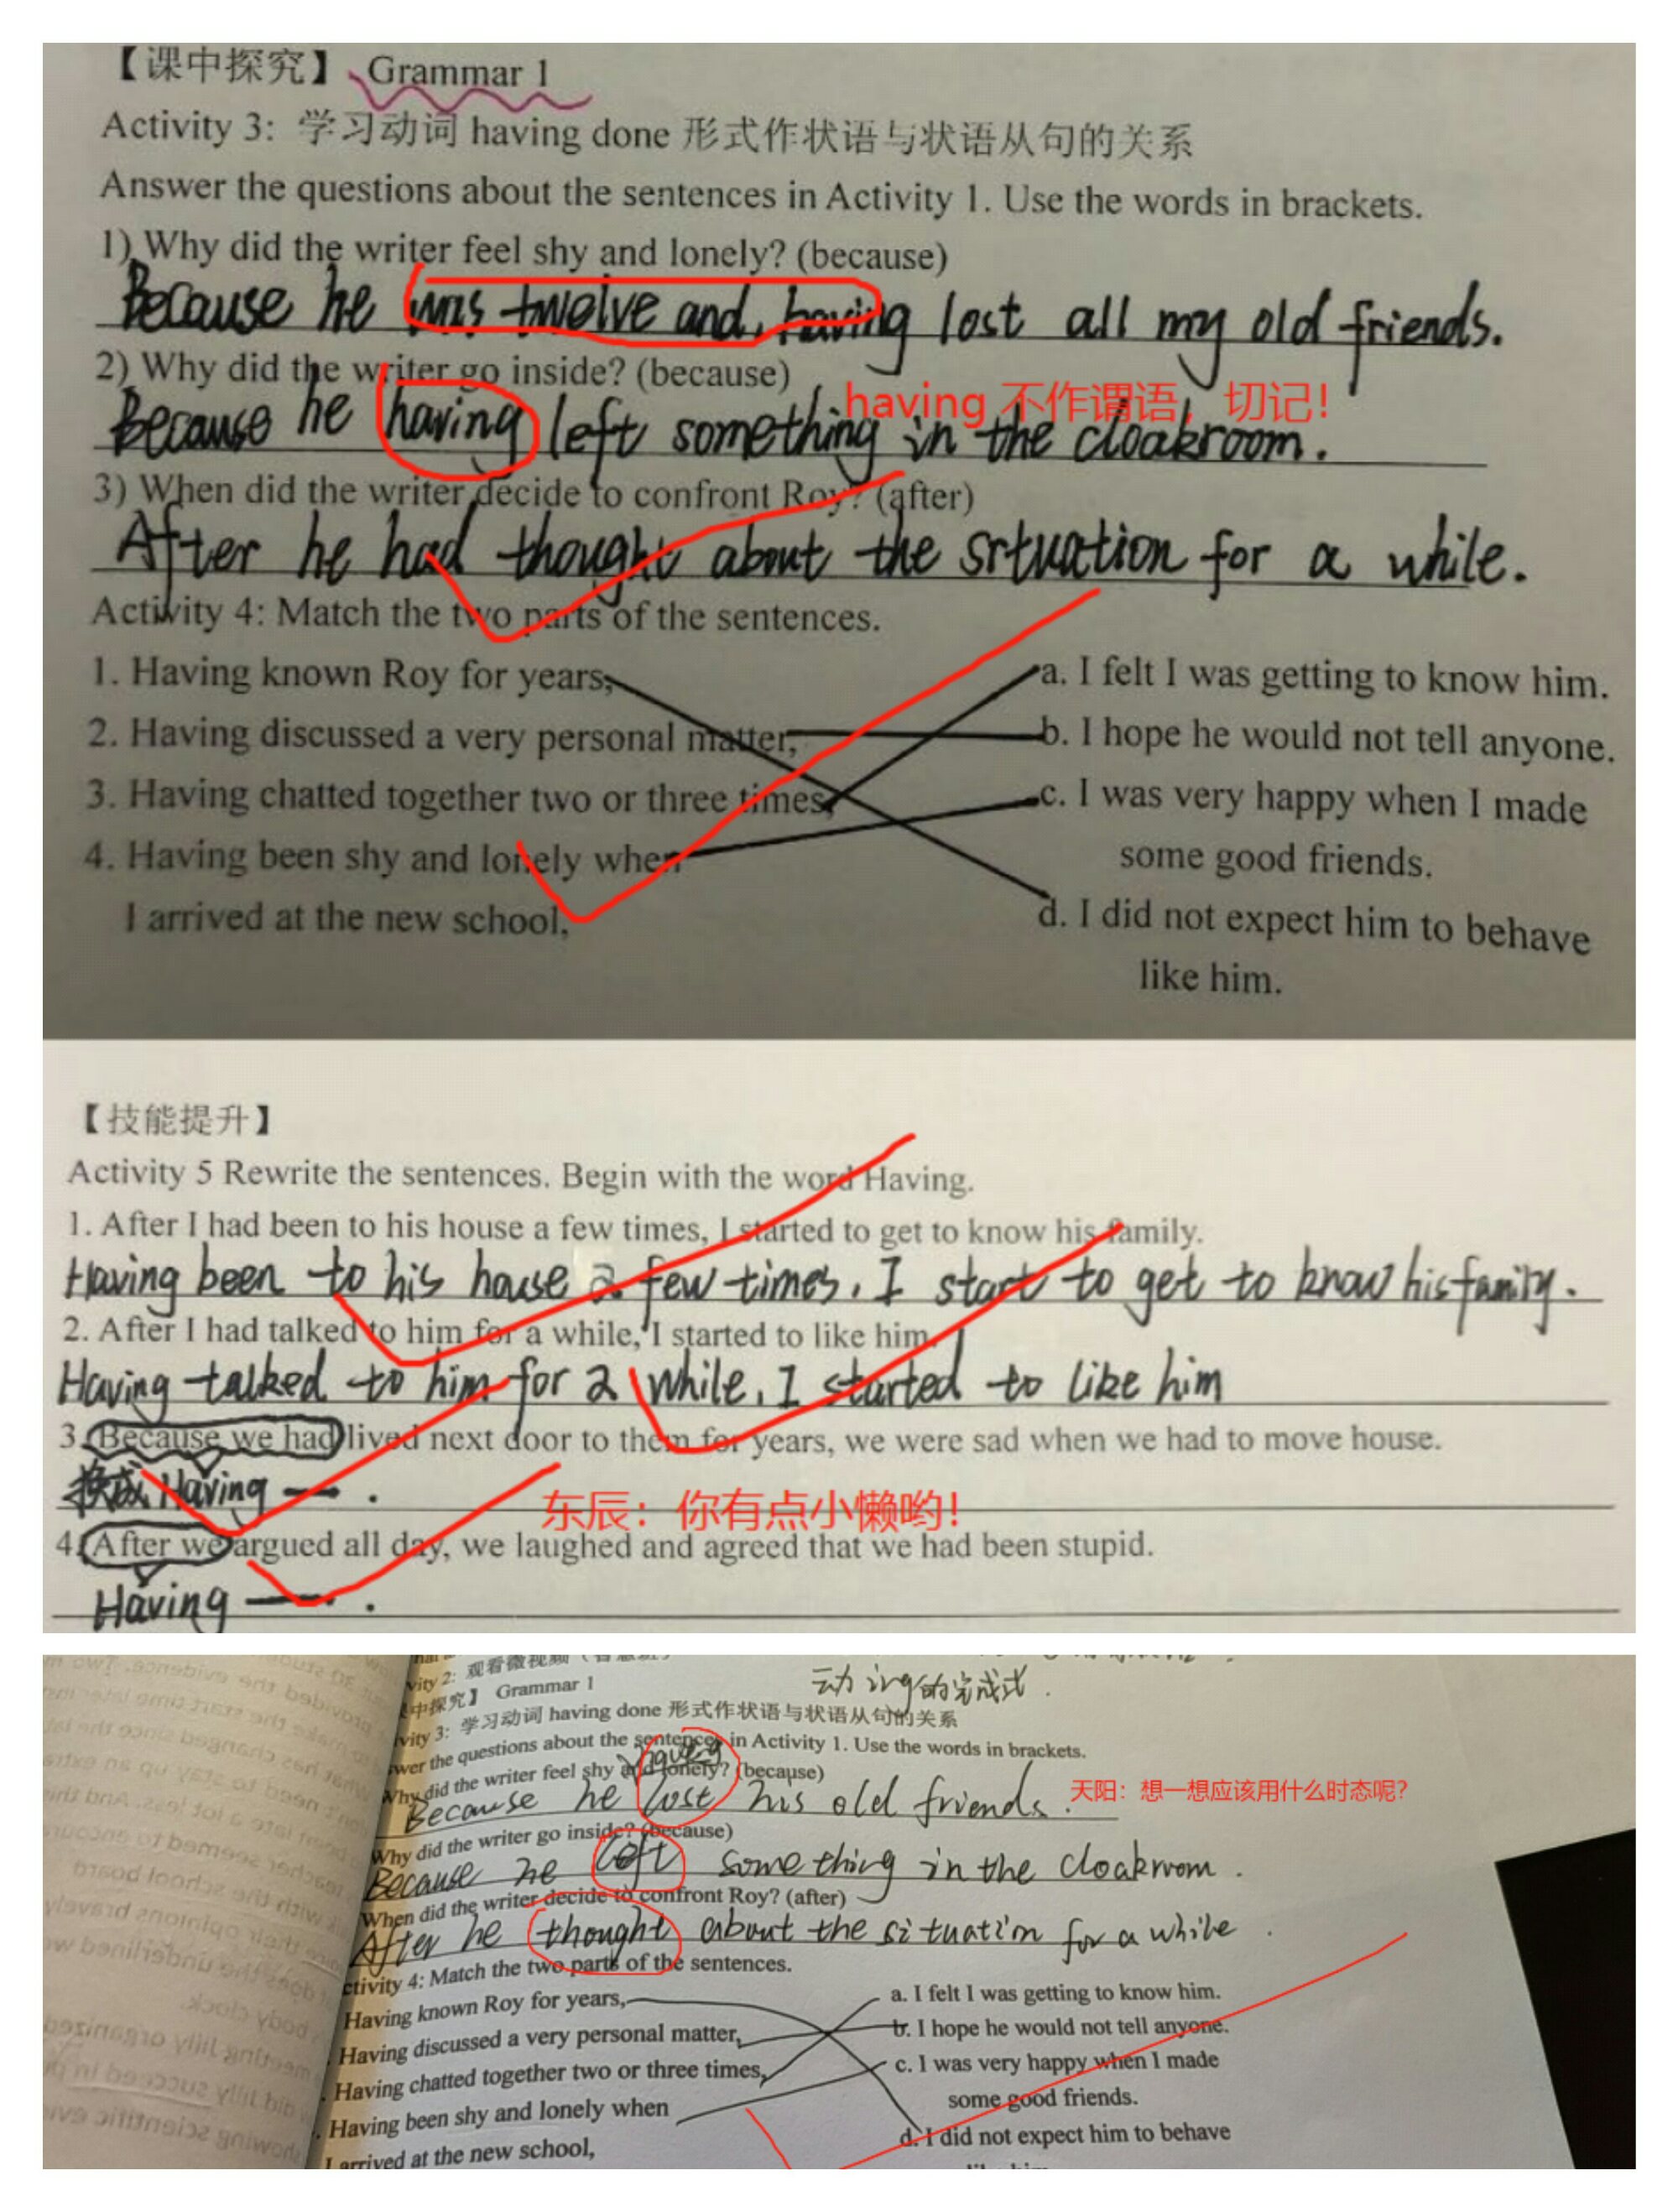 【课中探究】 Grammar 1
Activity 3: 学习动词 having done 形式作状语与状语从句的关系
Answer the questions about the sentences in Activity 1. Use the words in brackets.
1) Why did the writer feel shy and lonely? (because)
Because he was twelve and, having lost all my old friends.
2) Why did the writer go inside? (because)
having 不作谓语，切记！
Because he having left something in the cloakroom.
3) When did the writer decide to confront Roy? (after)
After he had thought about the srtuation for a while.
Activity 4: Match the two parts of the sentences.
1. Having known Roy for years, a. I felt I was getting to know him.
2. Having discussed a very personal matter, b. I hope he would not tell anyone.
3. Having chatted together two or three times, c. I was very happy when I made
4. Having been shy and lonely when some good friends.
I arrived at the new school, d. I did not expect him to behave
like him.
【技能提升】
Activity 5 Rewrite the sentences. Begin with the word Having.
1. After I had been to his house a few times, I started to get to know his family.
Having been to his house a few times, I start to get to know his family.
2. After I had talked to him for a while, I started to like him.
Having talked to him for a while, I started to like him
3. Because we had lived next door to them for years, we were sad when we had to move house.
换成 Having — .
东辰：你有点小懒哟！
4. After we argued all day, we laughed and agreed that we had been stupid.
Having — .
vity 2: 观看微视频
动 ing的完成式.
中探究】 Grammar 1
vity 3: 学习动词 having done 形式作状语与状语从句的关系
wer the questions about the sentences in Activity 1. Use the words in brackets.
having
Why did the writer feel shy and lonely? (because)
Because he lost his old friends.
天阳：想一想应该用什么时态呢？
Why did the writer go inside? (because)
Because he left something in the cloakroom.
When did the writer decide to confront Roy? (after)
After he thought about the situation for a while.
ctivity 4: Match the two parts of the sentences.
Having known Roy for years, a. I felt I was getting to know him.
. Having discussed a very personal matter, b. I hope he would not tell anyone.
. Having chatted together two or three times, c. I was very happy when I made
some good friends.
. Having been shy and lonely when d. I did not expect him to behave
I arrived at the new school,